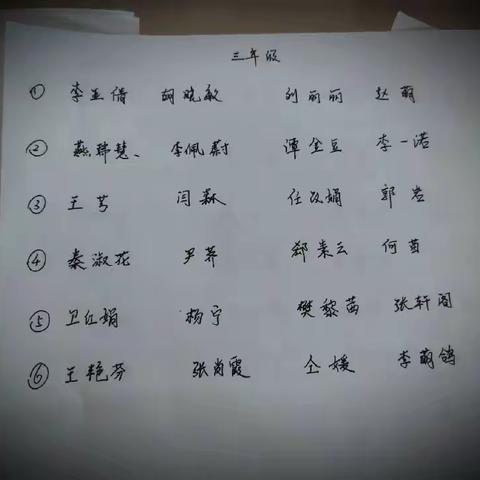 三年级
① 李亚倩 胡晓敏 刘丽丽 赵丽
② 燕瑞慧、 李佩蔚 谭金豆 李一诺
③ 王芳 闫霖 任改娟 郭岩
④ 秦淑花 尹荞 郑来云 何苗
⑤ 卫红娟 杨宁 樊黎茵 张轩阁
⑥ 王艳芬 张尚霞 仝媛 李萌鸽